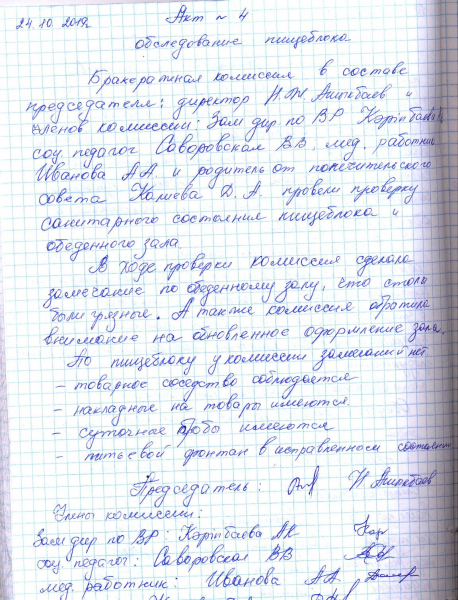 24.10.2019 Акт № 4
обследование пищеблока
Бракеражная комиссия в составе
председателя: директор И.Ж Ашикбаев и
членов комиссии: Зам дир по ВР Карибаева
соц педагог Саворовская В.В, мед. работник
Иванова АА и родитель от попечительского
совета Калиева Д.А. провели проверку
санитарного состояния пищеблока и
обеденного зала
В ходе проверки комиссия сделала
замечание по обеденному залу, что столы
были грязные. А также комиссия обратила
внимание на обновленное оформление зала.
По пищеблоку у комиссии замечаний нет
– товарное соседство соблюдается
– накладные на товары имеются
– суточные пробы имеются
– питьевой фонтан в исправленном состоянии
Председатель: И Ашикбаев
Члены комиссии:
Зам дир по ВР: Карибаева АК
соц педагог: Саворовская ВВ
мед. работник: Иванова АА